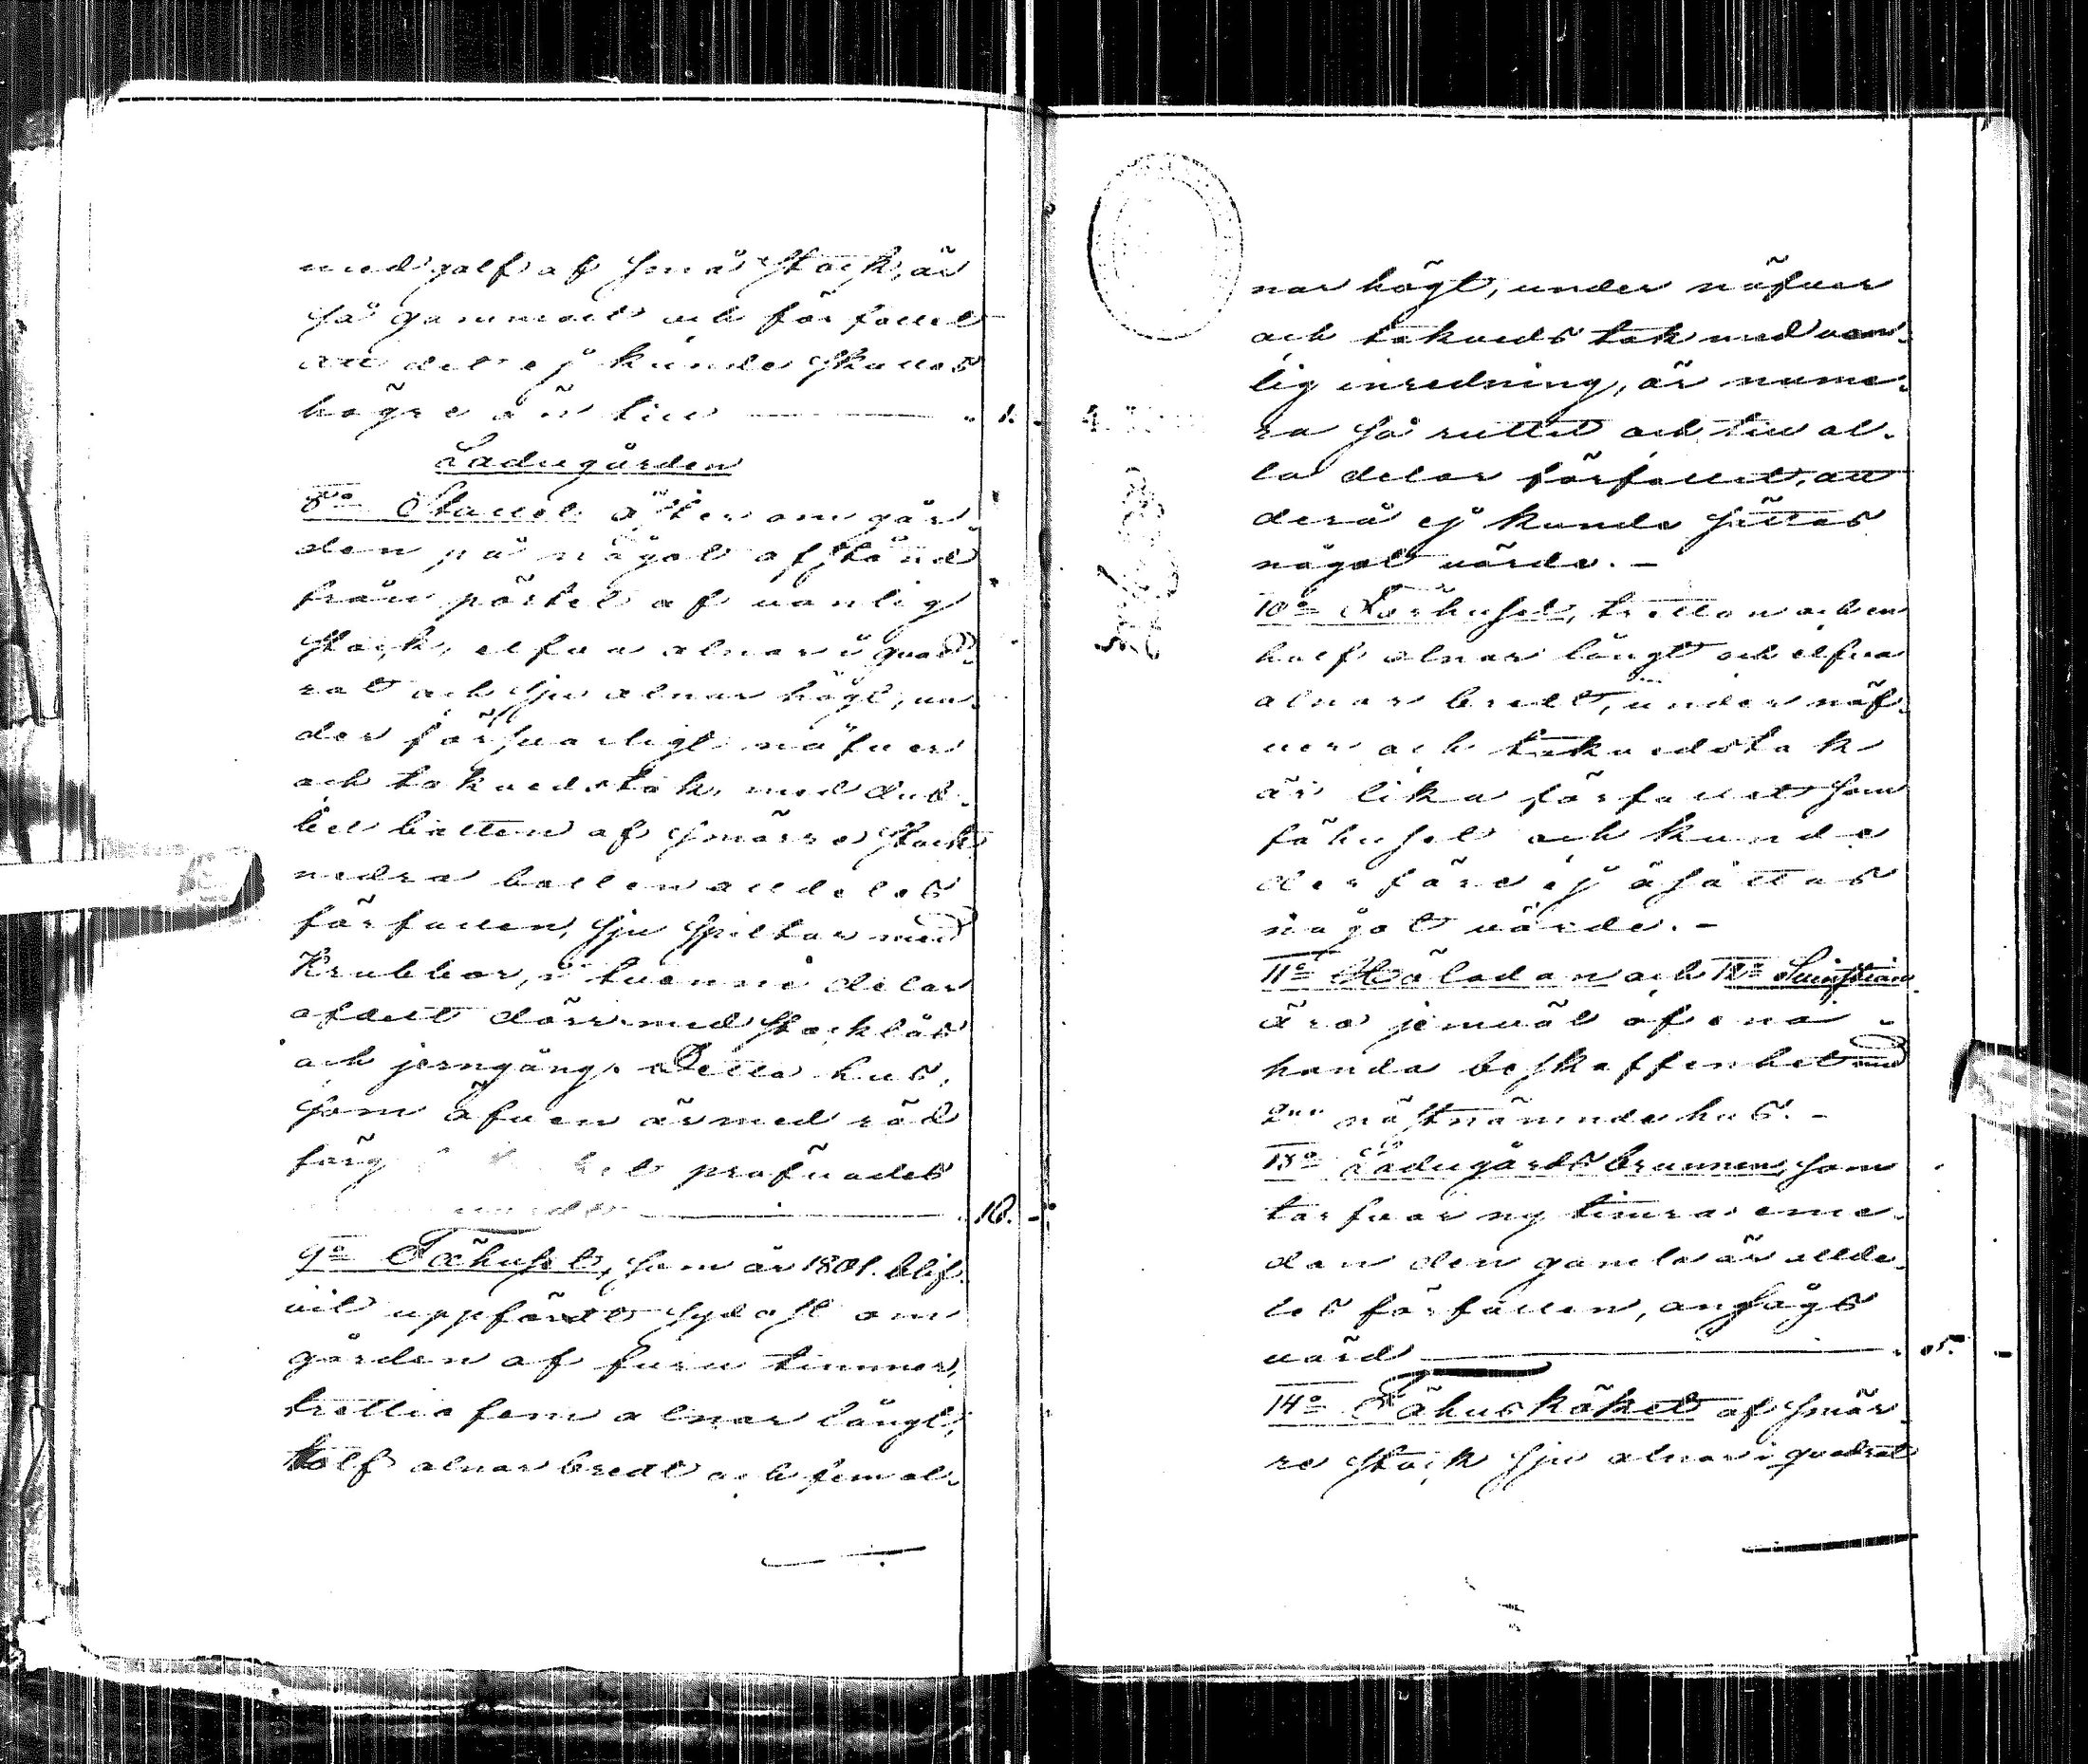 med golf af små stock, är
så gammalt och förfallet
att det ej kunde skattas
högre än till — 1. -
Ladugården
8o Stallet öster om går-
den på något afstånd
från pörtet af vanlig
stock, elfva alnar i quad-
rat och sju alnar högt, un-
der försvarligt näfver
och takvedstak, med dub-
bel botten af smärre stock
nedra botten alldeles
förfallen, sju spiltar med
Krubbor, i tvenne delar
afdelt dörr med stocklås
och jerngång. Detta hus,
som äfven är med röd
färg prøfvades
värdt — 10. -
9o Fähuset, som år 1801. blif-
vit uppfördt sydost om
gården af furu timmer,
trettio fem alnar långt,
tolf alnar bredt och fem al-
nar högt, under näfver
och takveds tak med van-
lig inredning, är nume-
ra så ruttit och till al-
la delar förfallet, att
derå ej kunde sättas
något värde. -
10o Fårhuset, tretton och en
half alnar långt och elfva
alnar bredt, under näf-
ver och takvedstak
är lika förfallet som
fähuset och kunde
derföre ej åsättas
något värde. -
11o Höladan och 12o Svinstian
äro jemväl af ena-
handa beskaffenhet med
2ne nästnämnde hus. -
13o Ladugårds brunnen, som
tarfvar ny timra eme-
dan den gamla är allde-
les förfallen, ansågs
värd — 5. -
14o Fähusköket af smär-
re stock sju alnar i quadrat